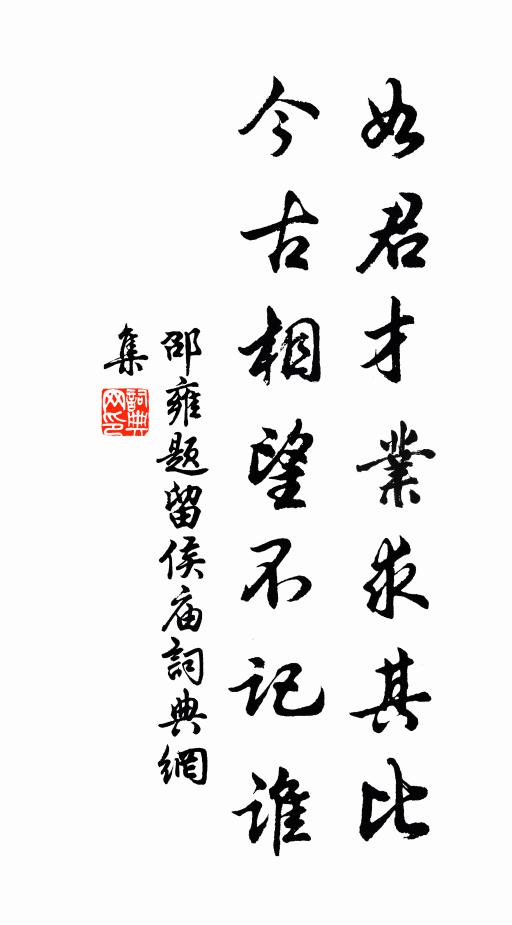 如君才業求其比
今古相望不記谁
邵雍题留侯庙詞典網
集
詞典网印